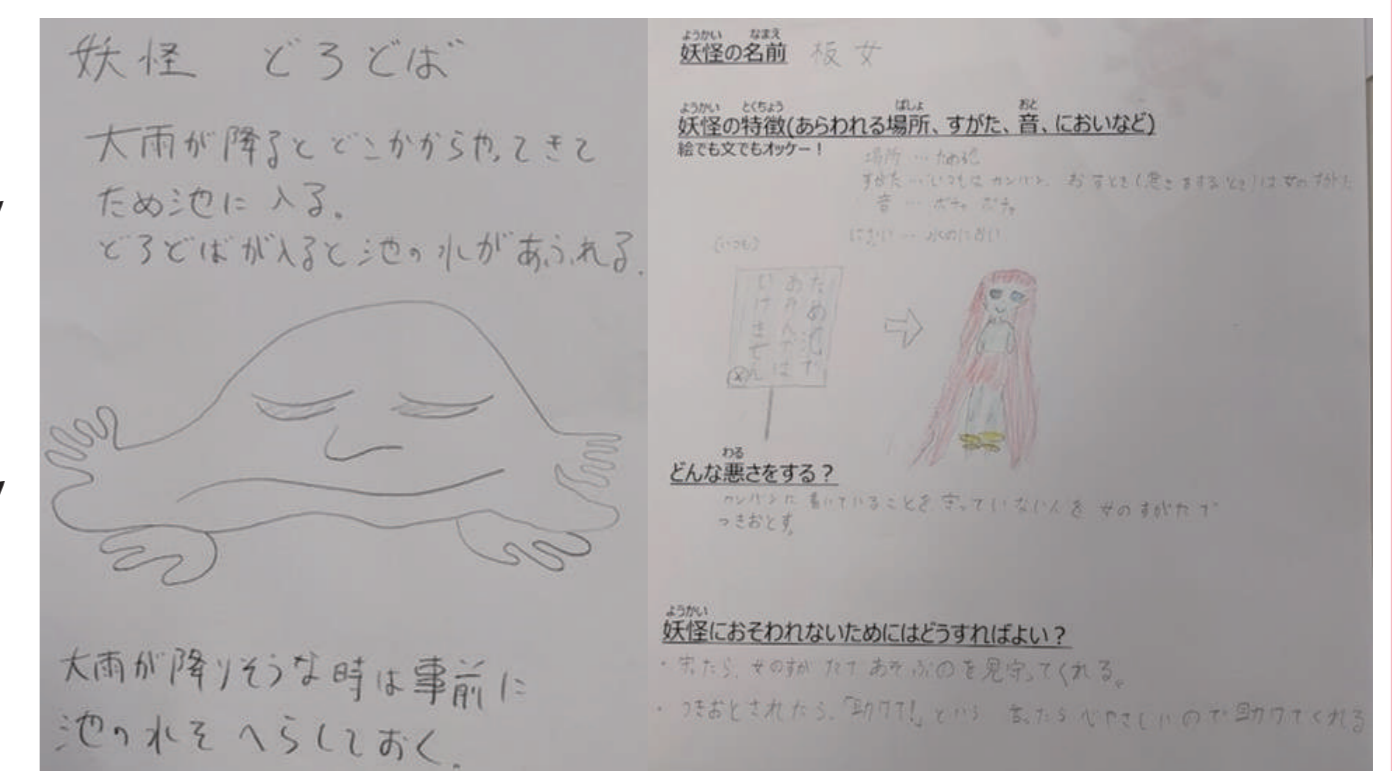 妖怪 どろどば
大雨が降るとどこからやってきて
ため池に入る。
どろどばが入ると池の水があふれる。
大雨が降りそうな時は事前に
池の水をへらしておく。
ようかい なまえ
妖怪の名前 板女
ようかい とくちょう ばしょ おと
妖怪の特徴(あらわれる場所、すがた、音、においなど)
絵でも文でもオッケー!
場所…ため池
すがた…いつもはカンバン、おすとき(悪さをするとき)は女のすがた
音…ポチャ ポチャ
におい…水のにおい
(いつも)
ため池で
あそんでは
いけません
わる
どんな悪さをする?
カンバンに書いていることを守っていない人を女のすがたで
つきおとす。
ようかい
妖怪におそわれないためにはどうすればよい?
・守ったら、女のすがたであそぶのを見守ってくれる。
・つきおとされたら、「助けて!」という 言ったら心やさしいので助けてくれる